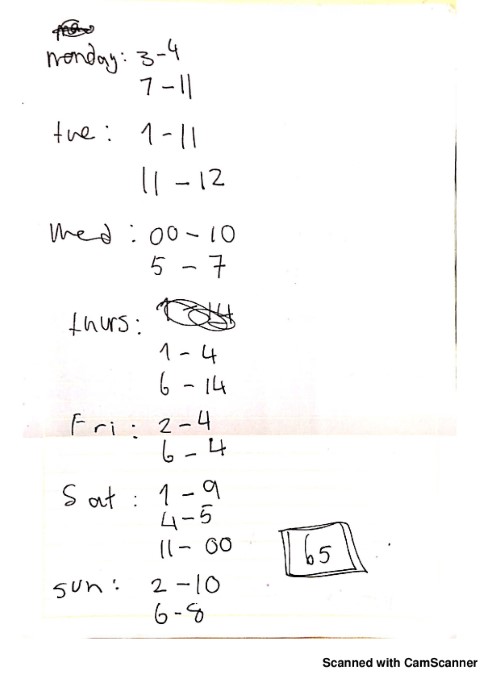 Monday: 3-4
7-11
tue: 1-11
11-12
Wed: 00-10
5-7
thurs:
1-4
6-14
Fri: 2-4
6-4
Sat: 1-9
4-5
11-00
65
sun: 2-10
6-8
Scanned with CamScanner